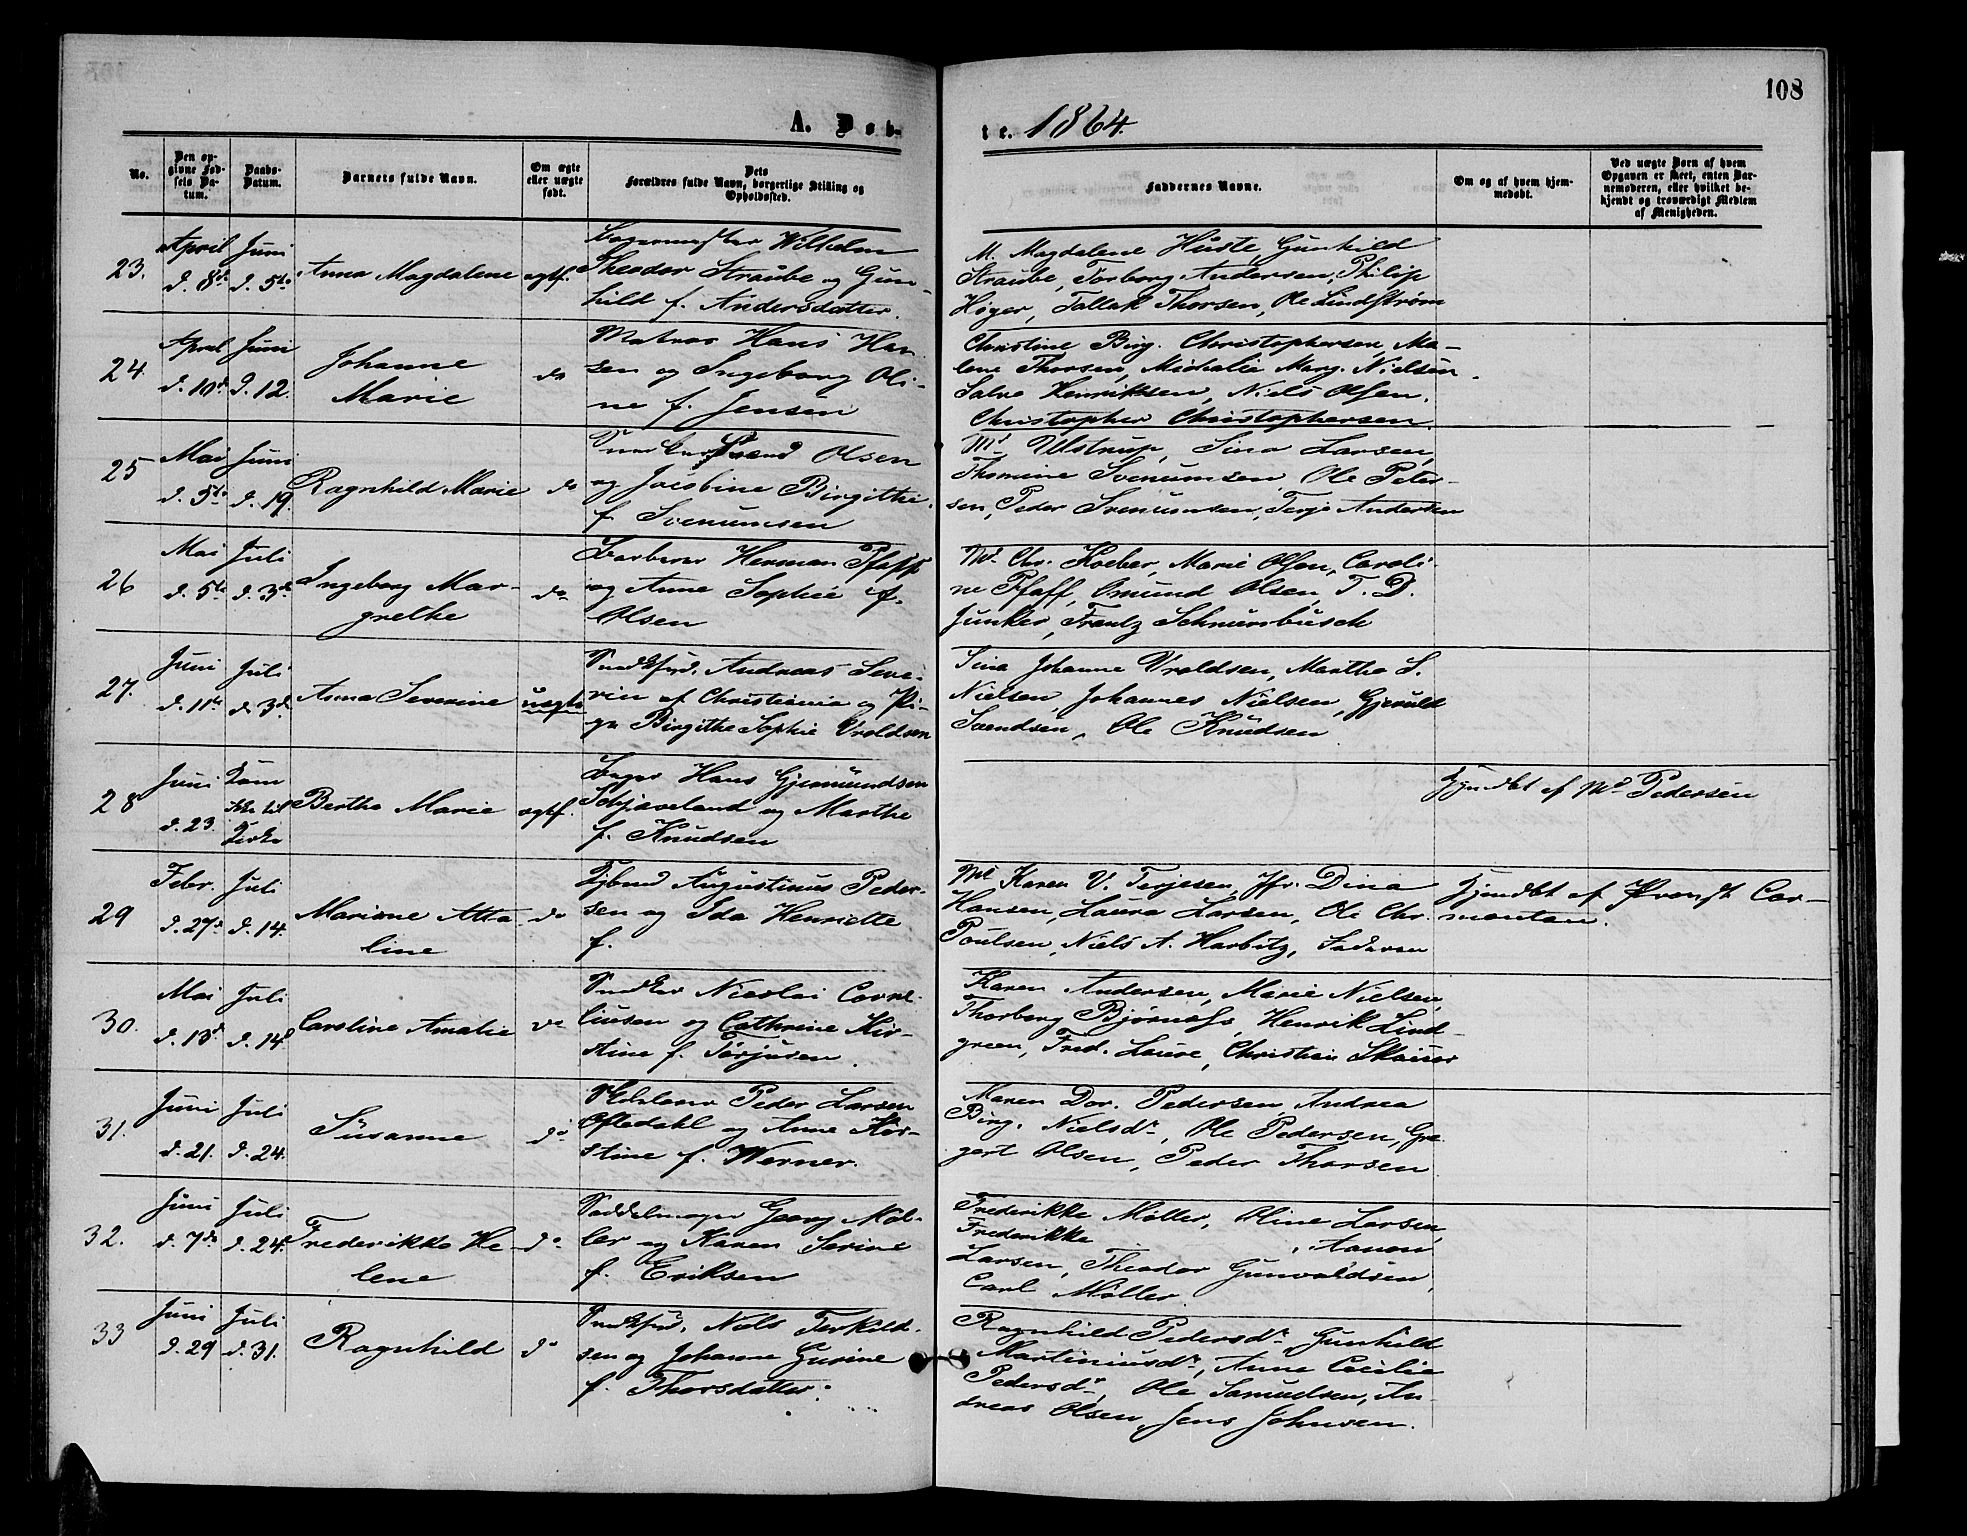 108
A. Døb-
te. 1864.
No.
Den op-
givne Fød-
sels Da-
tum.
Daabs-
Datum.
Barnets fulde Navn.
Om ægte
eller uægte
født.
Dets
Forældres fulde Navn, borgerlige Stilling og
Opholdssted.
Faddernes Navne.
Om og af hvem hjem-
medøbt.
Ved uægte Børn af hvem
Opgaven er skeet, enten Bar-
nemoderen, eller hvilket be-
kjendt og troværdigt Medlem
af Menigheden.
23.
April
d. 8de
Juni
d. 5te
Anna Magdalene
ægtf.
Bagermester Wilhelm
Theodor Straube og Gun-
hild f. Andersdatter.
M. Magdalene Huste, Gunhild
Straube, Torborg Andersen, Philip
Høyer, Tallak Thorsen, Ole Lindstrøm
24.
April
d. 10de
Juni
d. 12.
Johanne
Marie
do
Matros Hans Han-
sen og Ingeborg Oli-
ne f. Jensen
Christine Birg. Christophersen, Ma-
lene Thorsen, Michalie Marg. Nielsen
Salve Henriksen, Niels Olsen,
Christopher Christophersen.
25
Mai
d. 5te
Juni
d. 19.
Ragnhild Marie
do
Snedker Svend Olsen
og Jacobine Birgithe
f. Svenumsen
Md Ulstrup, Sina Larsen,
Thomine Svenumsen, Ole Peter-
sen, Peder Svenumsen, Terje Andersen
26
Mai
d. 5te
Juli
d. 3de
Ingeborg Mar-
grethe
do
Barberer Herman Pfaff
og Anne Sophie f.
Olsen
Md. Chr. Koeber, Marie Olsen, Caroli-
ne Pfaff, Omund Olsen, T. D.
Junker, Frantz Schnurrbusch
27.
Juni
d. 11te
Juli
d. 3de
Anna Severine
uægte
Snedksvd. Andreas Seve-
rin af Christiania og Pi-
ge Birgithe Sophie Vroldsen
Sina Johanne Vroldsen, Marthe S.
Nielsen, Johannes Nielsen, Gjeruld
Svendsen, Ole Knudsen
28
Juni
d. 23.
Kom
ikke til
Kirke
Berthe Marie
ægtf.
Bager Hans Gjermundsen
Skjaveland og Marthe
f. Knudsen
Hjmdbt af Md Pedersen
29
Febr.
d. 27de
Juli
d. 14.
Marinne Atta-
line
do
Augustinus Peder-
sen og Ida Henriette
f.
Md Karen V. Terjesen, Jfr. Dina
Hansen, Laura Larsen, Ole Chr.
Poulsen, Niels A. Harbitz, Faderen
Hjmdbt af Provst Car-
montan.
30.
Mai
d. 13de
Juli
d. 14de
Caroline Amalie
do
Snedker Nicolai Corne-
liusen og Cathrine Kir-
stine f. Torjusen.
Karen Andersen, Marie Nielsen,
Thorborg Bjørnsen, Henrik Lind-
green, Fred. Laure, Christian Skaiaar
31.
Juni
d. 21.
Juli
d. 24.
Susanne
do
Peder Larsen
Oftedahl og Anne Kir-
stine f. Werner.
Maren Dor. Pedersen, Andrea
Birg. Nielsdr, Ole Pedersen, Gre-
gert Olsen, Peder Thorsen
32.
Juni
d. 7de
Juli
d. 24de
Frederikke He-
lene
do
Saddelmager Georg Møl-
ler og Karen Serine
f. Eriksen
Frederikke Møller, Oline Larsen,
Frederikke , Aanon
Larsen, Theodor Gunvaldsen,
Carl Møller.
33
Juni
d. 29
Juli
d. 31.
Ragnhild
do
Snedksvd. Nels Terkild-
sen og Johanne Gurine
f. Thorsdatter.
Ragnhild Pedersdr, Gunhild
Martiniusdr, Anne Cecilie
Pedersdr, Ole Samuelsen, An-
dreas Olsen, Jens Johnsen.